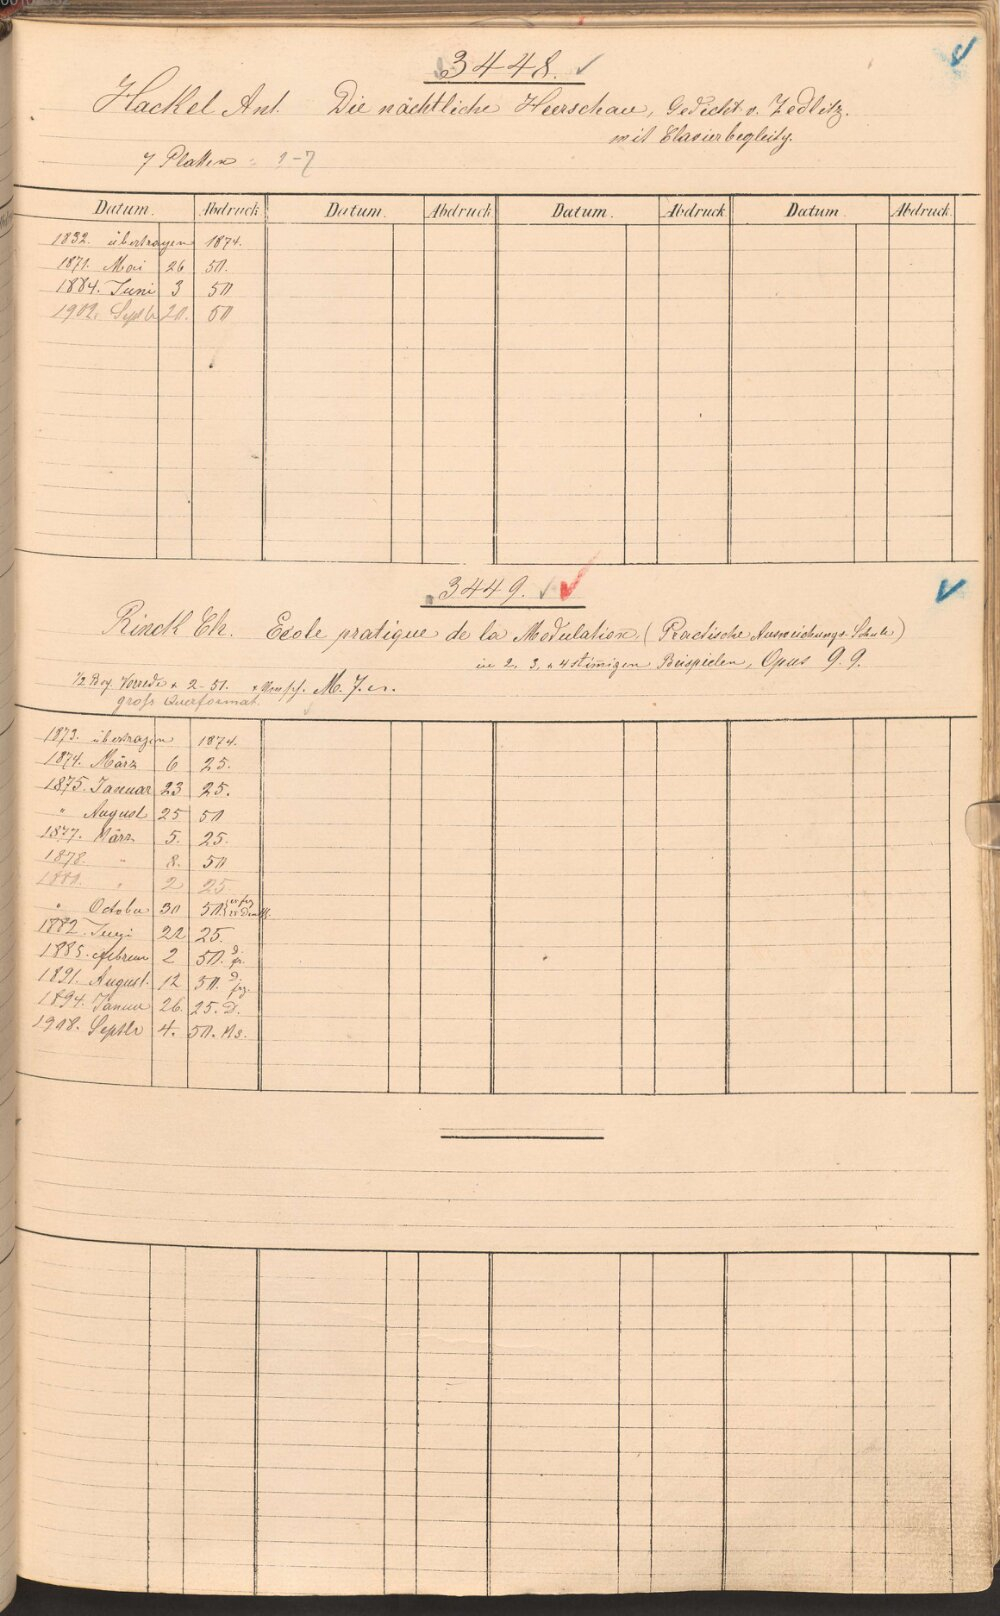 3448.
Hackel Ant. Die nächtliche Heerschau, Gedicht v. Zedlitz.
mit Clavierbegleitg.
7 Platten 1-7
Datum. Abdruck Datum. Abdruck Datum. Abdruck Datum. Abdruck.
1832. übertragen 1874.
1871. Mai 26 50.
1884. Juni 3 50
1902. Septb 20. 50
3449.
Rinck Ch. Ecole pratique de la Modulation (Practische Ausweichungs-Schule)
in 2, 3, u 4stimigen Beispielen, Opus 99.
1/2 Bog. Vorrede u. 2-51. M. J. er.
gross Querformat.
1873. übertragen 1874.
1874. März 6 25.
1875. Januar 23 25.
" August 25 50
1877. März 5. 25.
1878. " 8. 50
1880. " 2 25.
" October 30 50.
1882. Juni 22 25.
1885. Februar 2 50. d. fr.
1891. August. 12 50. d. frz.
1894. Januar 26. 25. D.
1908. Septbr 4. 50. Ns.